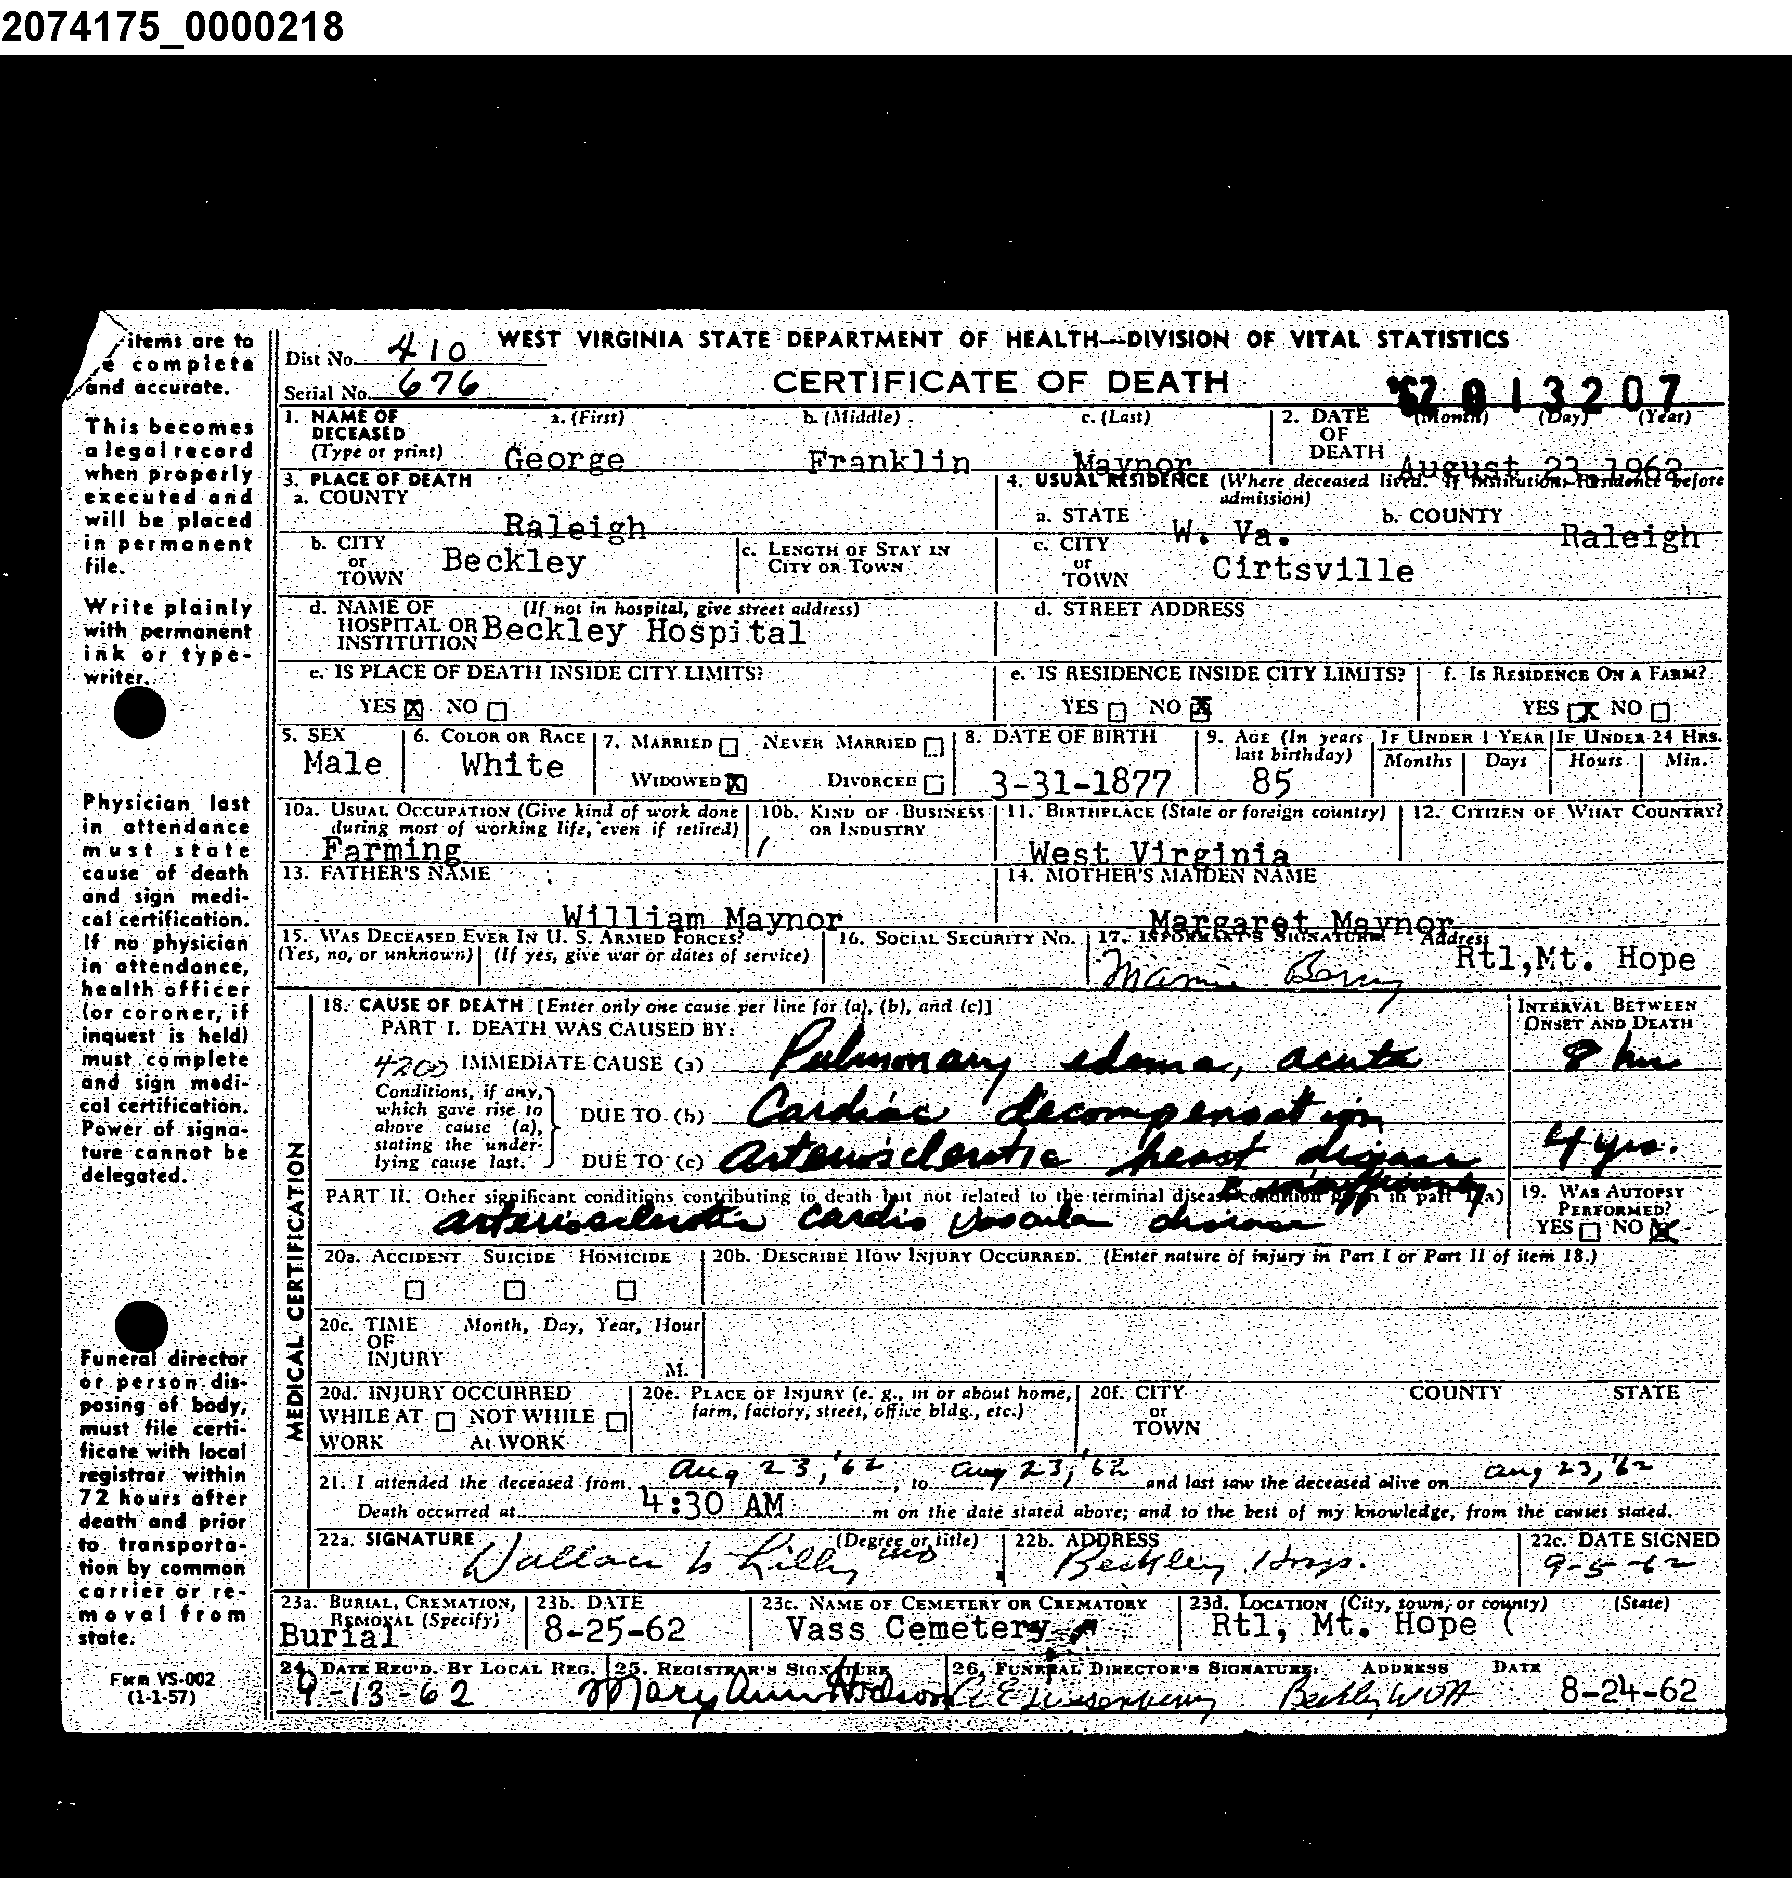 2074175_0000218
items are to
complete
and accurate.
This becomes
a legal record
when properly
executed and
will be placed
in permanent
file.
Write plainly
with permanent
ink or type-
writer.
Physician last
in attendance
must state
cause of death
and sign medi-
cal certification.
If no physician
in attendance,
health officer
(or coroner, if
inquest is held)
must complete
and sign medi-
cal certification.
Power of signa-
ture cannot be
delegated.
Funeral director
or person dis-
posing of body,
must file certi-
ficate with local
registrar within
72 hours after
death and prior
to transporta-
tion by common
carrier or re-
moval from
state.
Form VS-002
(1-1-57)
WEST VIRGINIA STATE DEPARTMENT OF HEALTH—DIVISION OF VITAL STATISTICS
Dist No. 410
Serial No. 676
CERTIFICATE OF DEATH
'62 013207
1. NAME OF DECEASED (Type or print) a. (First) b. (Middle) c. (Last)
George Franklin Maynor
2. DATE OF DEATH (Month) (Day) (Year)
August 23, 1962
3. PLACE OF DEATH
a. COUNTY
Raleigh
4. USUAL RESIDENCE (Where deceased lived. If Institution: Residence before admission)
a. STATE W. Va. b. COUNTY Raleigh
b. CITY or TOWN Beckley
c. LENGTH OF STAY IN CITY OR TOWN
c. CITY or TOWN Cirtsville
d. NAME OF HOSPITAL OR INSTITUTION (If not in hospital, give street address)
Beckley Hospital
d. STREET ADDRESS
e. IS PLACE OF DEATH INSIDE CITY LIMITS?
YES X NO
e. IS RESIDENCE INSIDE CITY LIMITS?
YES NO X
f. IS RESIDENCE ON A FARM?
YES X NO
5. SEX Male
6. COLOR OR RACE White
7. MARRIED NEVER MARRIED
WIDOWED X DIVORCED
8. DATE OF BIRTH
3-31-1877
9. AGE (In years last birthday)
85
IF UNDER 1 YEAR
Months Days
IF UNDER 24 HRS.
Hours Min.
10a. USUAL OCCUPATION (Give kind of work done during most of working life, even if retired)
Farming
10b. KIND OF BUSINESS OR INDUSTRY
11. BIRTHPLACE (State or foreign country)
West Virginia
12. CITIZEN OF WHAT COUNTRY?
13. FATHER'S NAME
William Maynor
14. MOTHER'S MAIDEN NAME
Margaret Maynor
15. WAS DECEASED EVER IN U. S. ARMED FORCES?
(Yes, no, or unknown) (If yes, give war or dates of service)
16. SOCIAL SECURITY NO.
17. INFORMANT'S SIGNATURE Address
Rt1,Mt. Hope
MEDICAL CERTIFICATION
18. CAUSE OF DEATH [Enter only one cause per line for (a), (b), and (c)]
INTERVAL BETWEEN ONSET AND DEATH
PART I. DEATH WAS CAUSED BY:
4200 IMMEDIATE CAUSE (a) Pulmonary edema, acute 8 hrs
Conditions, if any, which gave rise to above cause (a), stating the under-lying cause last.
DUE TO (b) Cardiac decompensation
DUE TO (c) arteriosclerotic heart disease 4 yrs.
PART II. Other significant conditions contributing to death but not related to the terminal disease condition given in part I(a)
arteriosclerotic cardio vascular disease
19. WAS AUTOPSY PERFORMED?
YES NO X
20a. ACCIDENT SUICIDE HOMICIDE
20b. DESCRIBE HOW INJURY OCCURRED. (Enter nature of injury in Part I or Part II of item 18.)
20c. TIME OF INJURY Month, Day, Year, Hour
M.
20d. INJURY OCCURRED
WHILE AT WORK NOT WHILE At WORK
20e. PLACE OF INJURY (e. g., in or about home, farm, factory, street, office bldg., etc.)
20f. CITY or TOWN COUNTY STATE
21. I attended the deceased from Aug 23, '62, to Aug 23, '62 and last saw the deceased alive on Aug 23, '62
Death occurred at 4:30 AM m on the date stated above; and to the best of my knowledge, from the causes stated.
22a. SIGNATURE (Degree or title)
Wallace Lilly MD
22b. ADDRESS
Beckley Hosp.
22c. DATE SIGNED
9-5-62
23a. BURIAL, CREMATION, REMOVAL (Specify)
Burial
23b. DATE
8-25-62
23c. NAME OF CEMETERY OR CREMATORY
Vass Cemetery
23d. LOCATION (City, town, or county) (State)
Rt1, Mt. Hope (
24. DATE REC'D. BY LOCAL REG.
9-13-62
25. REGISTRAR'S SIGNATURE
Mary Ann Hodson
26. FUNERAL DIRECTOR'S SIGNATURE: ADDRESS DATE
Beckley W Va 8-24-62